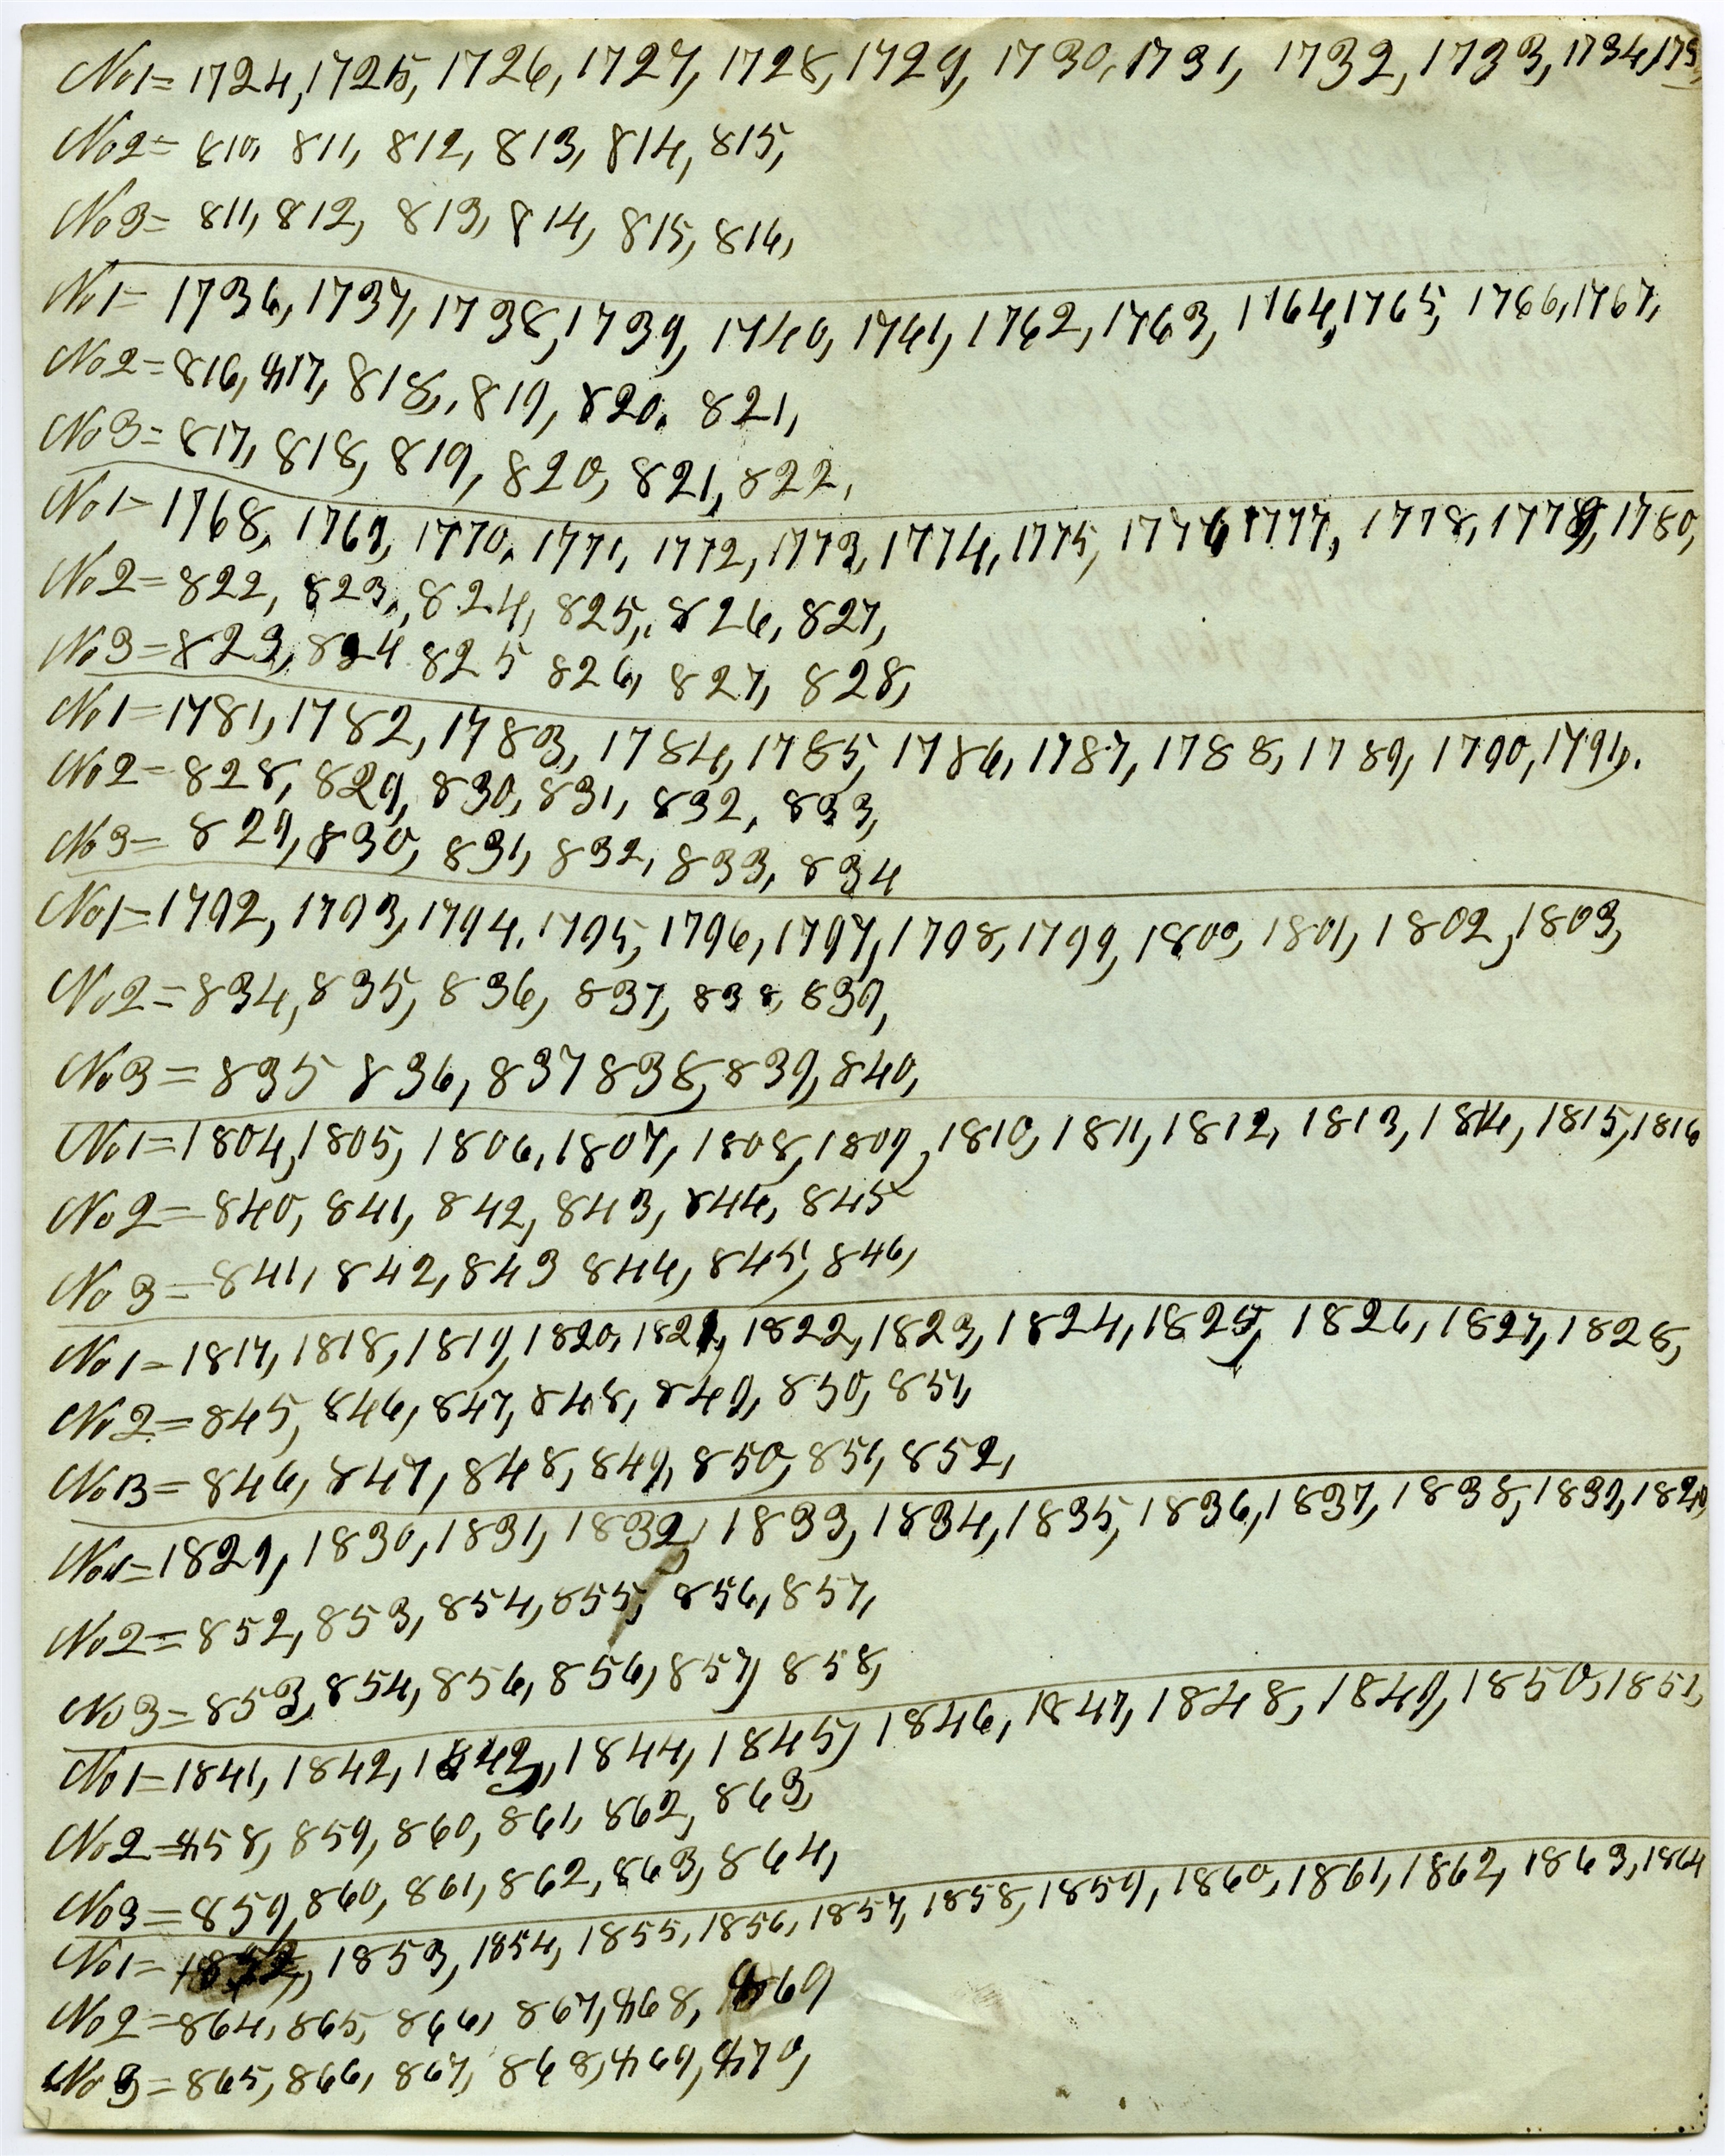 No1= 1724, 1725, 1726, 1727, 1728, 1729, 1730, 1731, 1732, 1733, 1734, 173
No2= 810, 811, 812, 813, 814, 815,
No3= 811, 812, 813, 814, 815, 816,
No1= 1736, 1737, 1738, 1739, 1740, 1761, 1762, 1763, 1164, 1765, 1766, 1767,
No2= 816, 417, 818, 819, 820, 821,
No3= 817, 818, 819, 820, 821, 822,
No1= 1768, 1769, 1770, 1771, 1772, 1773, 1774, 1775, 1776, 1777, 1778, 1779, 1780,
No2= 822, 823, 824, 825, 826, 827,
No3= 823, 824 825 826, 827, 828,
No1= 1781, 1782, 1783, 1784, 1785, 1786, 1787, 1788, 1789, 1790, 1791.
No2= 828, 829, 830, 831, 832, 833,
No3= 829, 830, 831, 832, 833, 834
No1= 1792, 1793, 1794, 1795, 1796, 1797, 1798, 1799, 1800, 1801, 1802, 1803,
No2= 834, 835, 836, 837, 838, 839,
No3= 835 836, 837 838, 839, 840,
No1= 1804, 1805, 1806, 1807, 1808, 1809, 1810, 1811, 1812, 1813, 1814, 1815, 1816
No2= 840, 841, 842, 843, 844, 845
No3= 841, 842, 843 844, 845, 846,
No1= 1817, 1818, 1819, 1820, 1821, 1822, 1823, 1824, 1825, 1826, 1827, 1828,
No2= 845, 846, 847, 848, 849, 850, 851,
No3= 846, 847, 848, 849, 850, 851, 852,
No1= 1829, 1830, 1831, 1832, 1833, 1834, 1835, 1836, 1837, 1838, 1839, 1840,
No2= 852, 853, 854, 855, 856, 857,
No3= 853, 854, 856, 856, 857, 858,
No1= 1841, 1842, 1843, 1844, 1845, 1846, 1847, 1848, 1849, 1850, 1851,
No2= 458, 859, 860, 861, 862, 863,
No3= 859, 860, 861, 862, 863, 864,
No1= 1852, 1853, 1854, 1855, 1856, 1857, 1858, 1859, 1860, 1861, 1862, 1863, 1864
No2= 864, 865, 866, 867, 468, 469
No3= 865, 866, 867, 868, 469, 470,